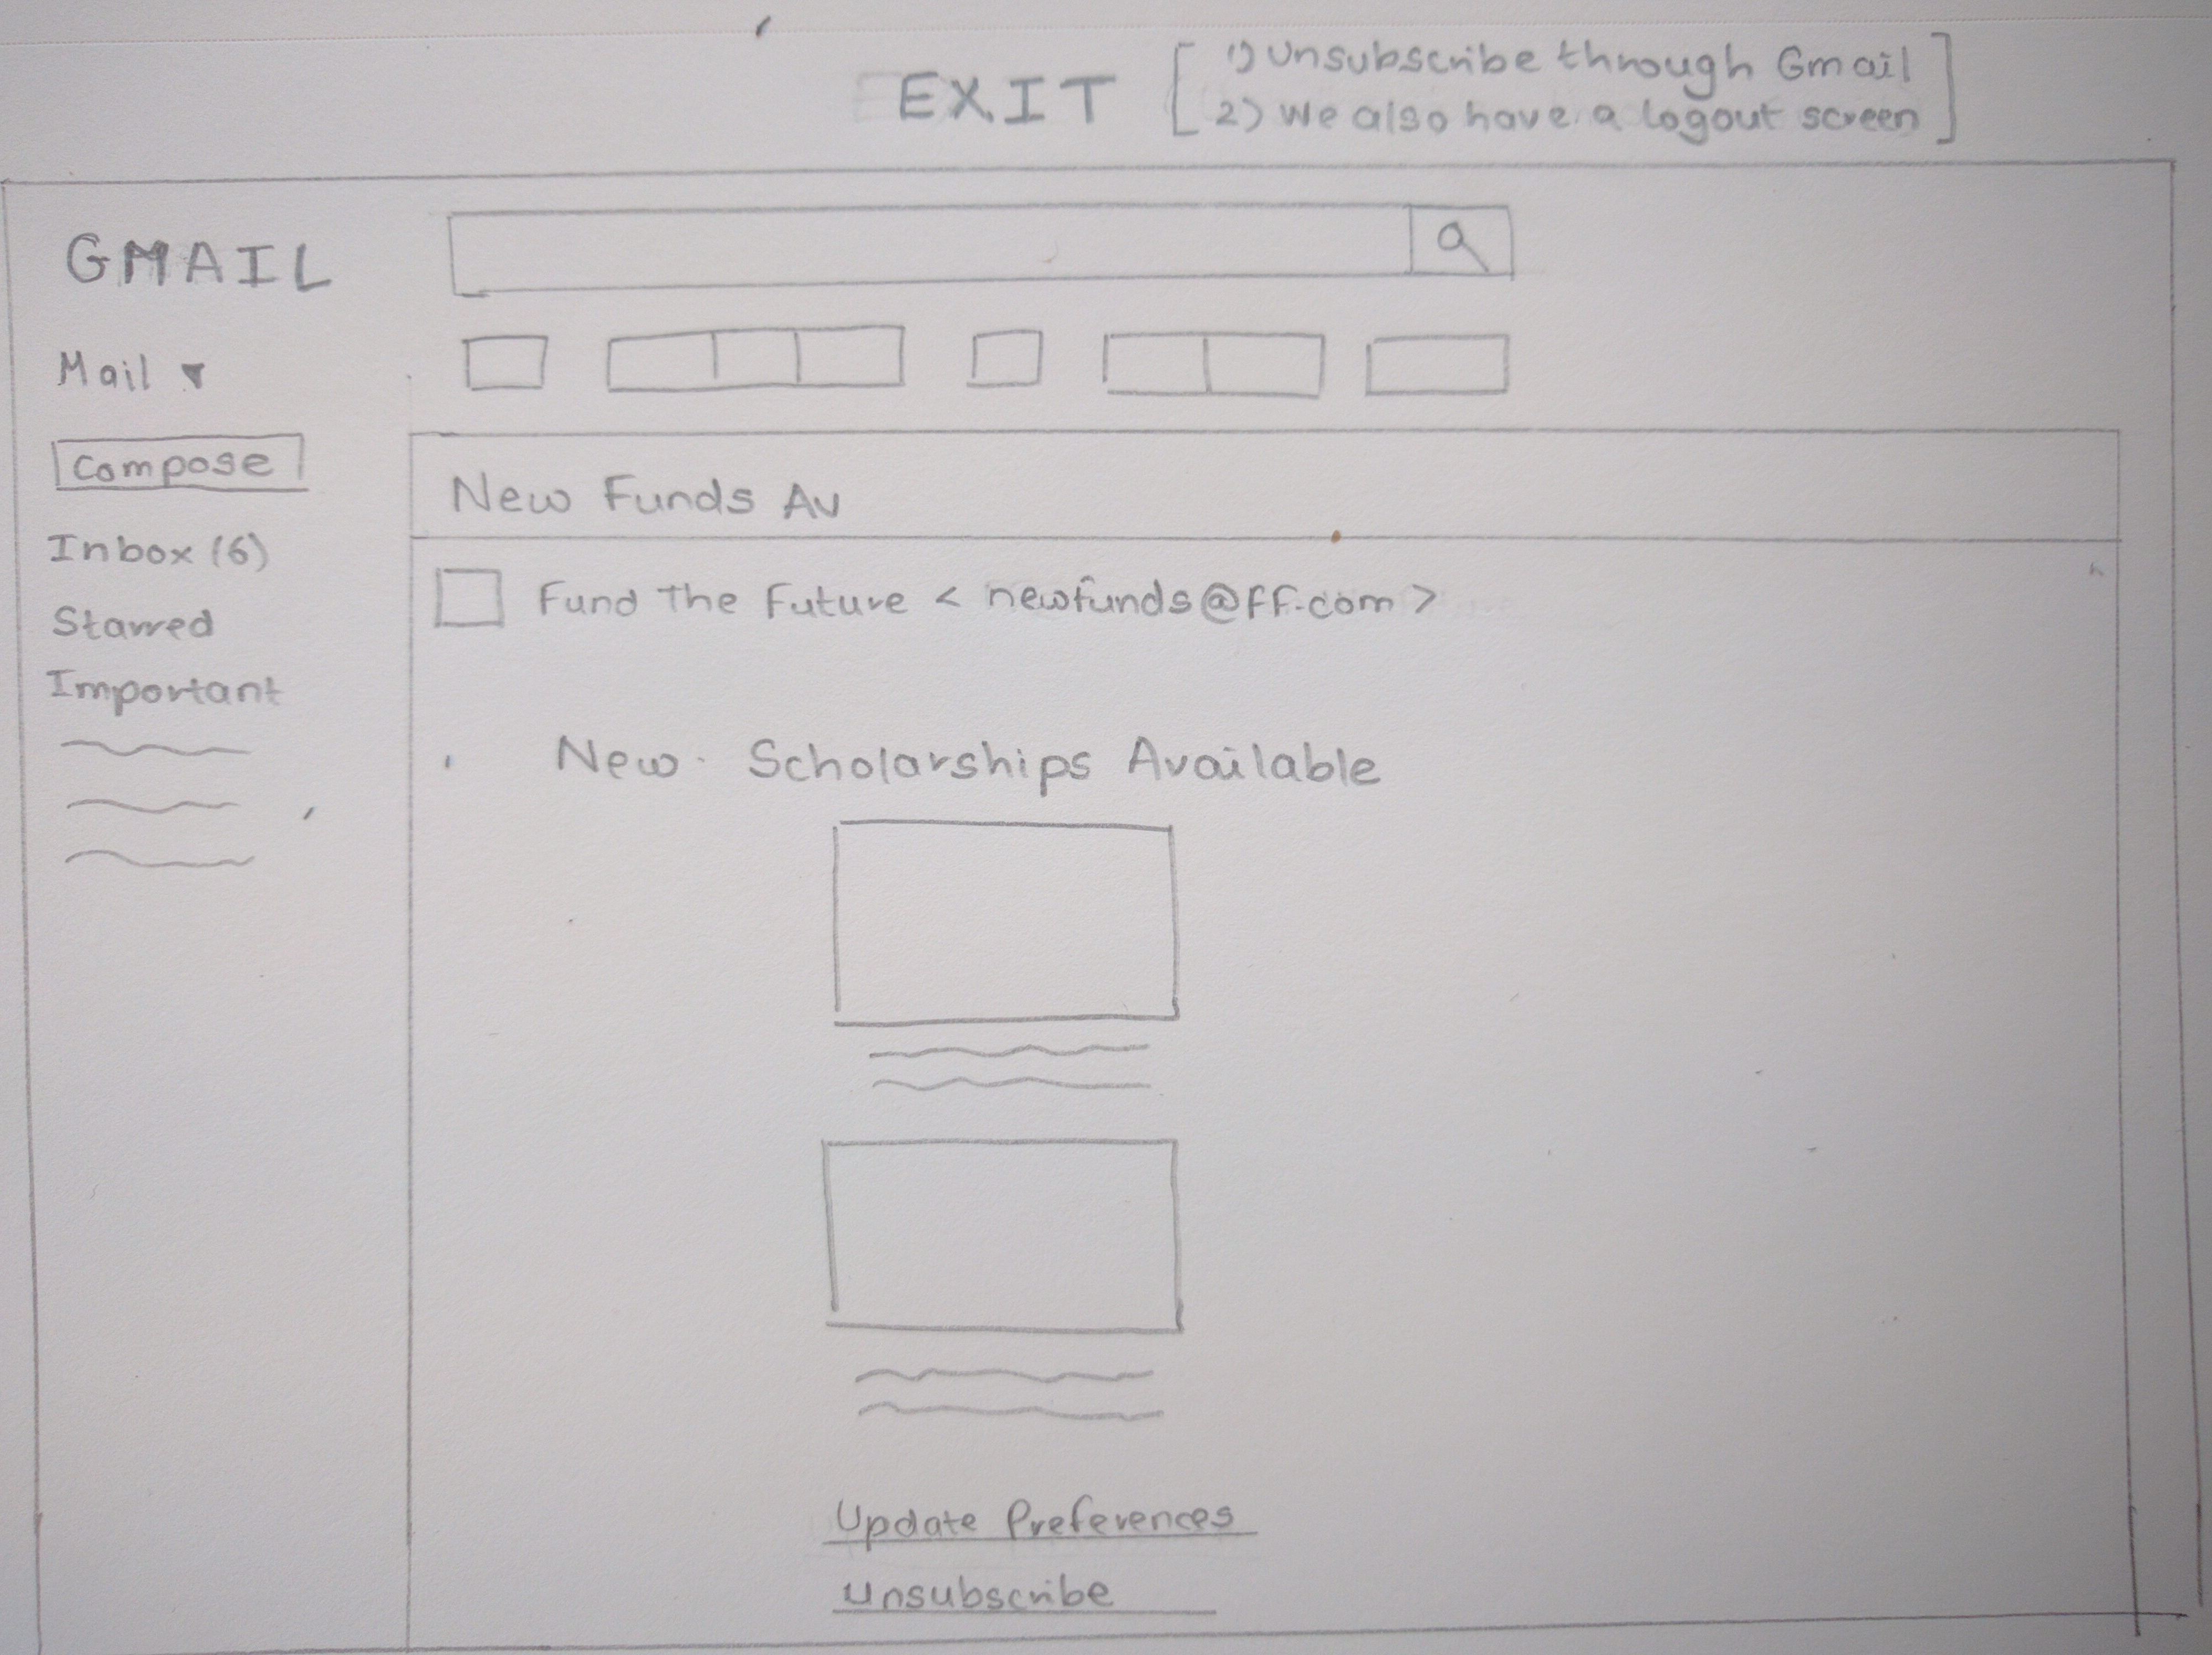 EXIT [ 1) Unsubscribe through Gmail
2) We also have a logout screen ]
GMAIL
Mail ▼
Compose
Inbox (6)
Starred
Important
New Funds Av
Fund The Future < newfunds@ff.com >
New Scholarships Available
Update Preferences
Unsubscribe